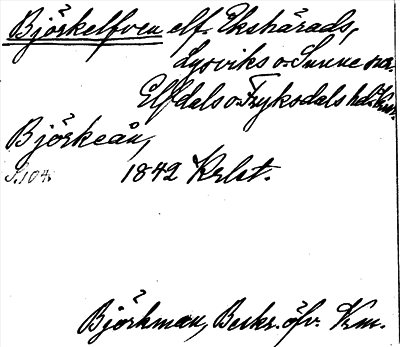 Björkelfven elf. Ekshärads,
Lysviks o. Sunne snr.
Elfdals o. Fryksdals hd. Vrm.
Björkeån,
S. 104. 1842 Krlst.
Björkman, Beskr. öfv. Vrm.